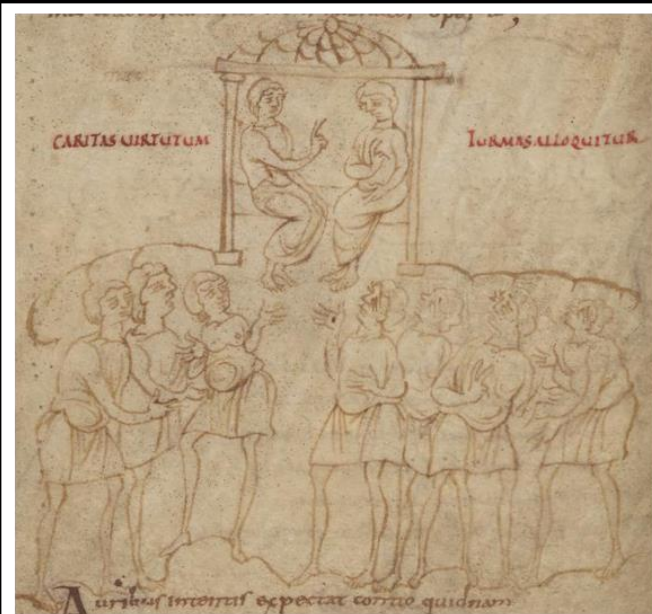 CARITAS UIRTUTUM TURMAS ALLOQUITUR
Auribus intentis expectat contio quidnam